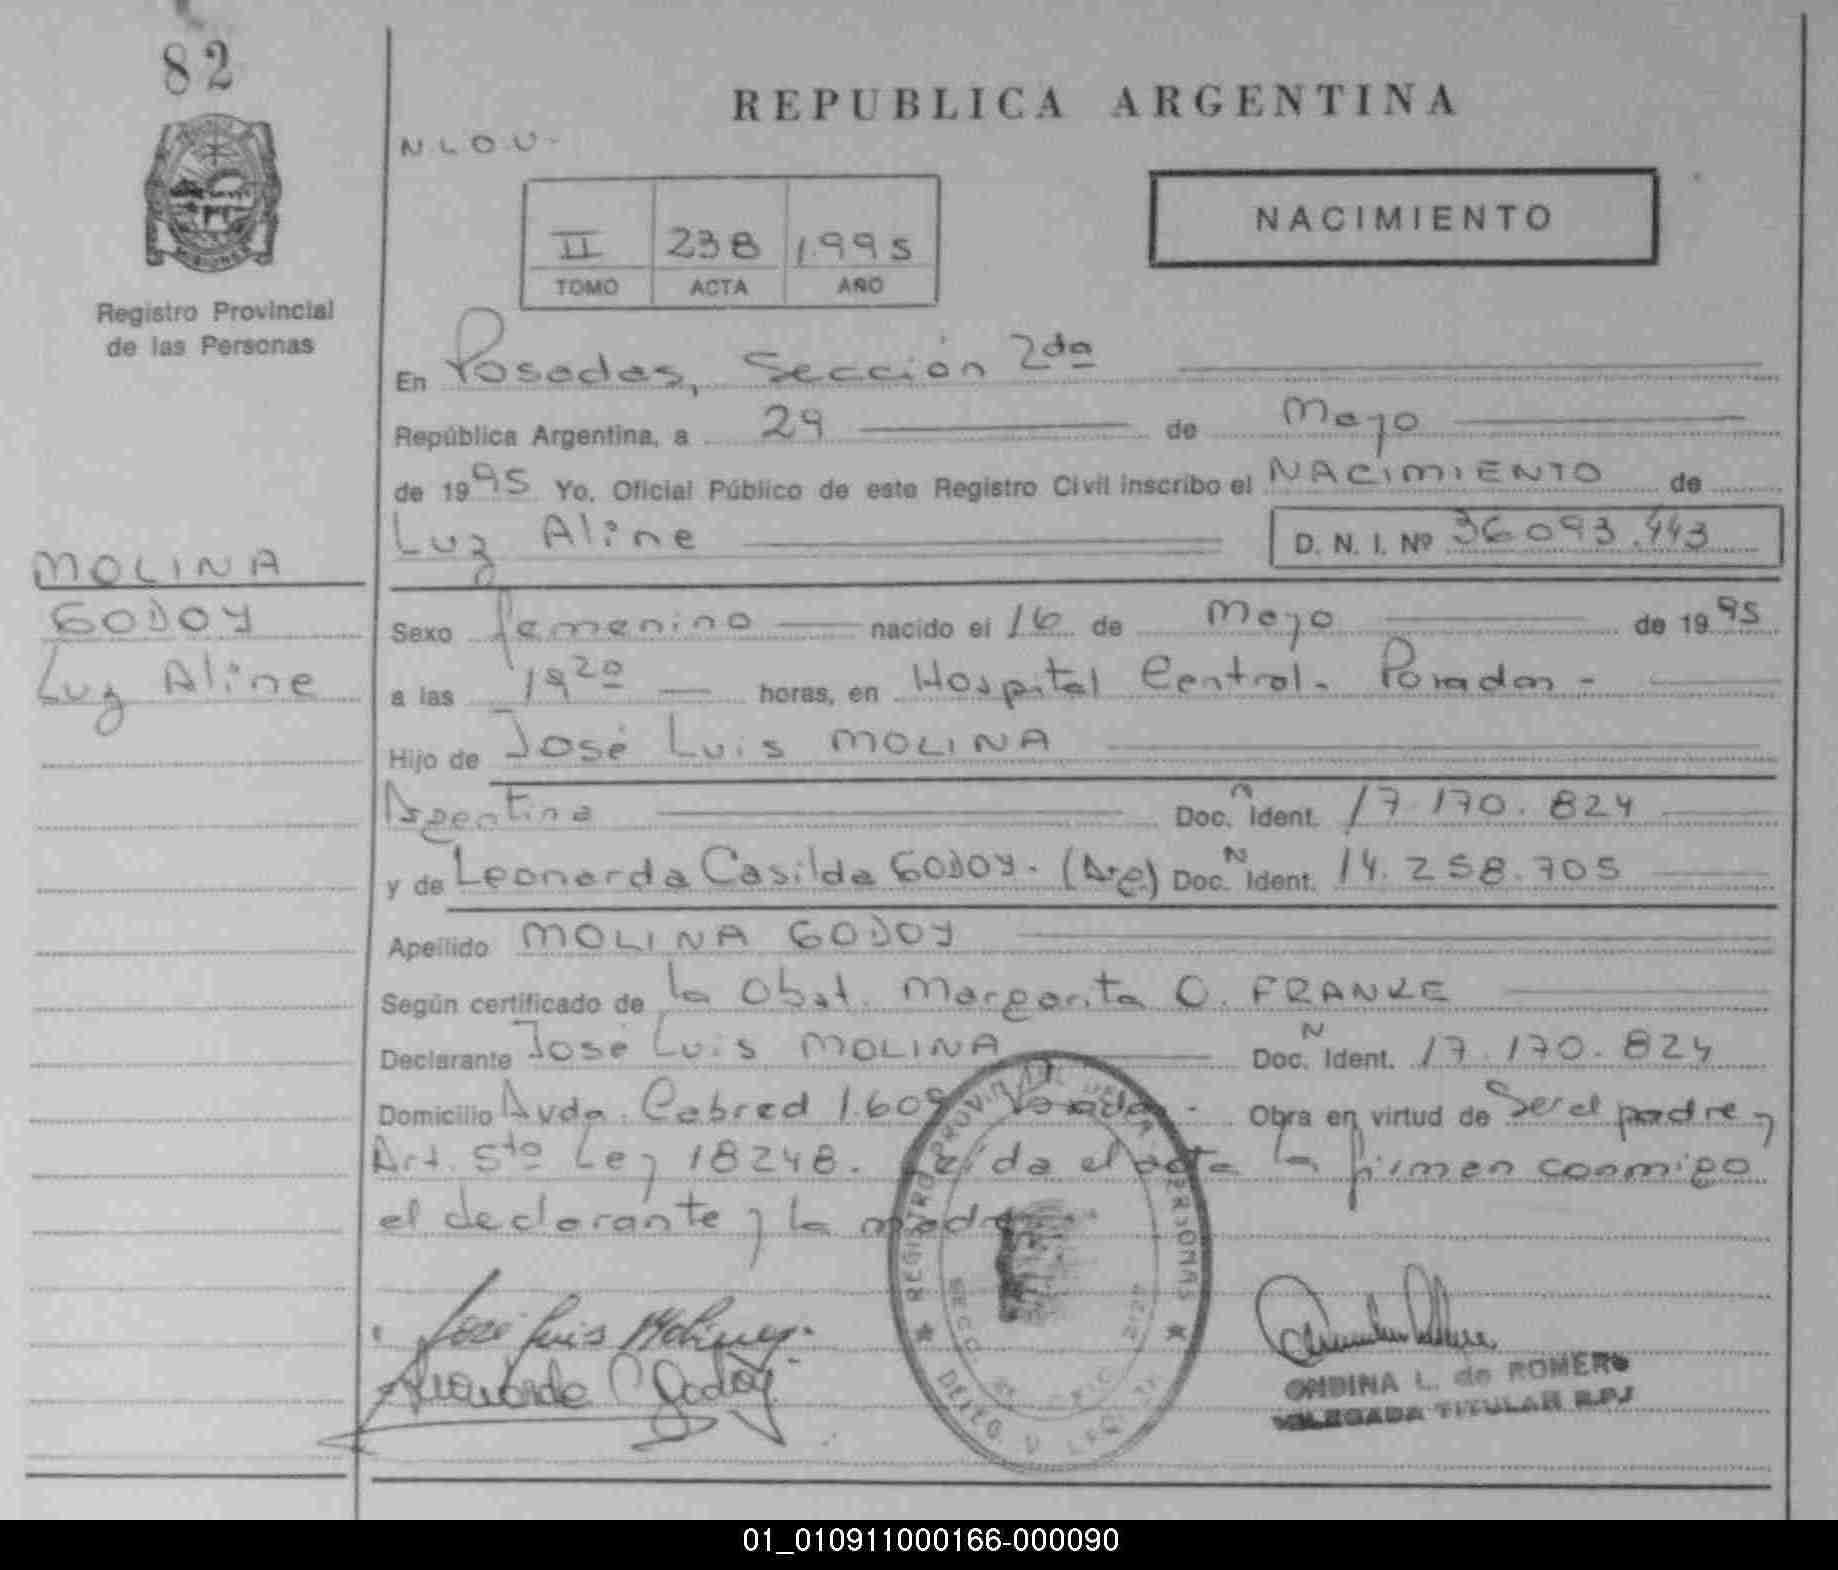 82
REPUBLICA ARGENTINA
N.L.O.U-
NACIMIENTO
II 238 1.995
TOMO ACTA AÑO
Registro Provincial
de las Personas
En Posadas, Sección 2da
República Argentina, a 29 de Mayo
de 1995 Yo. Oficial Público de este Registro Civil inscribo el NACIMIENTO de
Luz Aline D. N. I. Nº 36.093.443
MOLINA
GODOY
Luz Aline
Sexo femenino nacido el 16 de Mayo de 1995
a las 19 20 horas, en Hospital Central. Posadas -
Hijo de José Luis MOLINA
Argentina Doc. N Ident. 17.170.824
y de Leonarda Casilda GODOY. (Arg) Doc. N Ident. 14.258.705
Apellido MOLINA GODOY
Según certificado de la Obst. Margarita O. FRANKE
Declarante José Luis MOLINA Doc. N Ident. 17.170.824
Domicilio Avda. Cabred 1.609 Posadas - Obra en virtud de Ser el padre y
Art. 5to Ley 18248. Leída el acta la firman conmigo
el declarante y la madre
REGISTRO PROVINCIAL DE LAS PERSONAS
José Luis Molina
Leonarda C Godoy
ONDINA L. de ROMERO
DELEGADA TITULAR R.P.
01_010911000166-000090